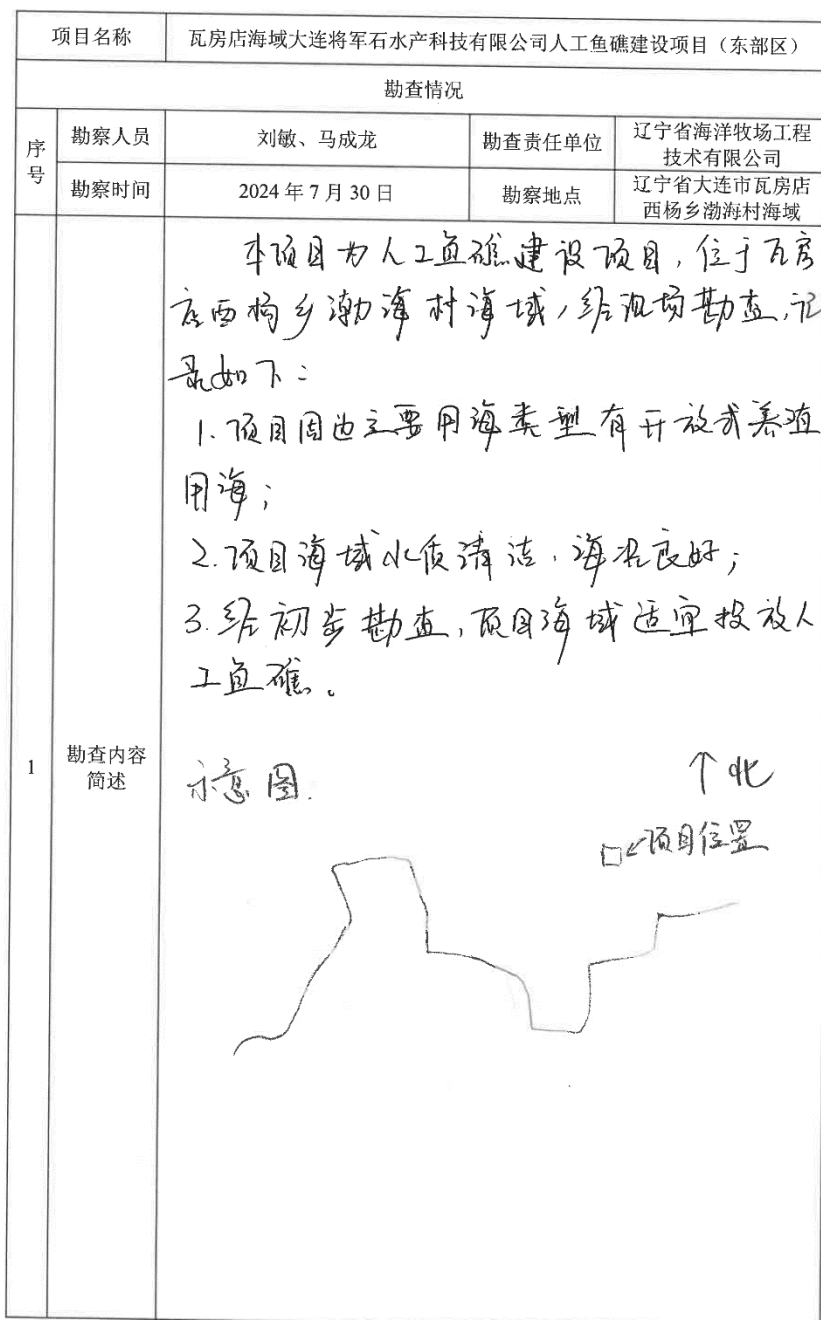 项目名称 瓦房店海域大连将军石水产科技有限公司人工鱼礁建设项目（东部区）
勘查情况
序号 勘察人员 刘敏、马成龙 勘查责任单位 辽宁省海洋牧场工程
技术有限公司
勘察时间 2024年7月30日 勘察地点 辽宁省大连市瓦房店
西杨乡渤海村海域
本项目为人工鱼礁建设项目，位于瓦房
店西杨乡渤海村海域，经现场勘查，记
录如下：
1.项目周边主要用海类型有开放式养殖
用海；
2.项目海域水质清洁，海况良好；
3.经初步勘查，项目海域适宜投放人
工鱼礁。
1 勘查内容
简述
示意图.
↑北
←项目位置